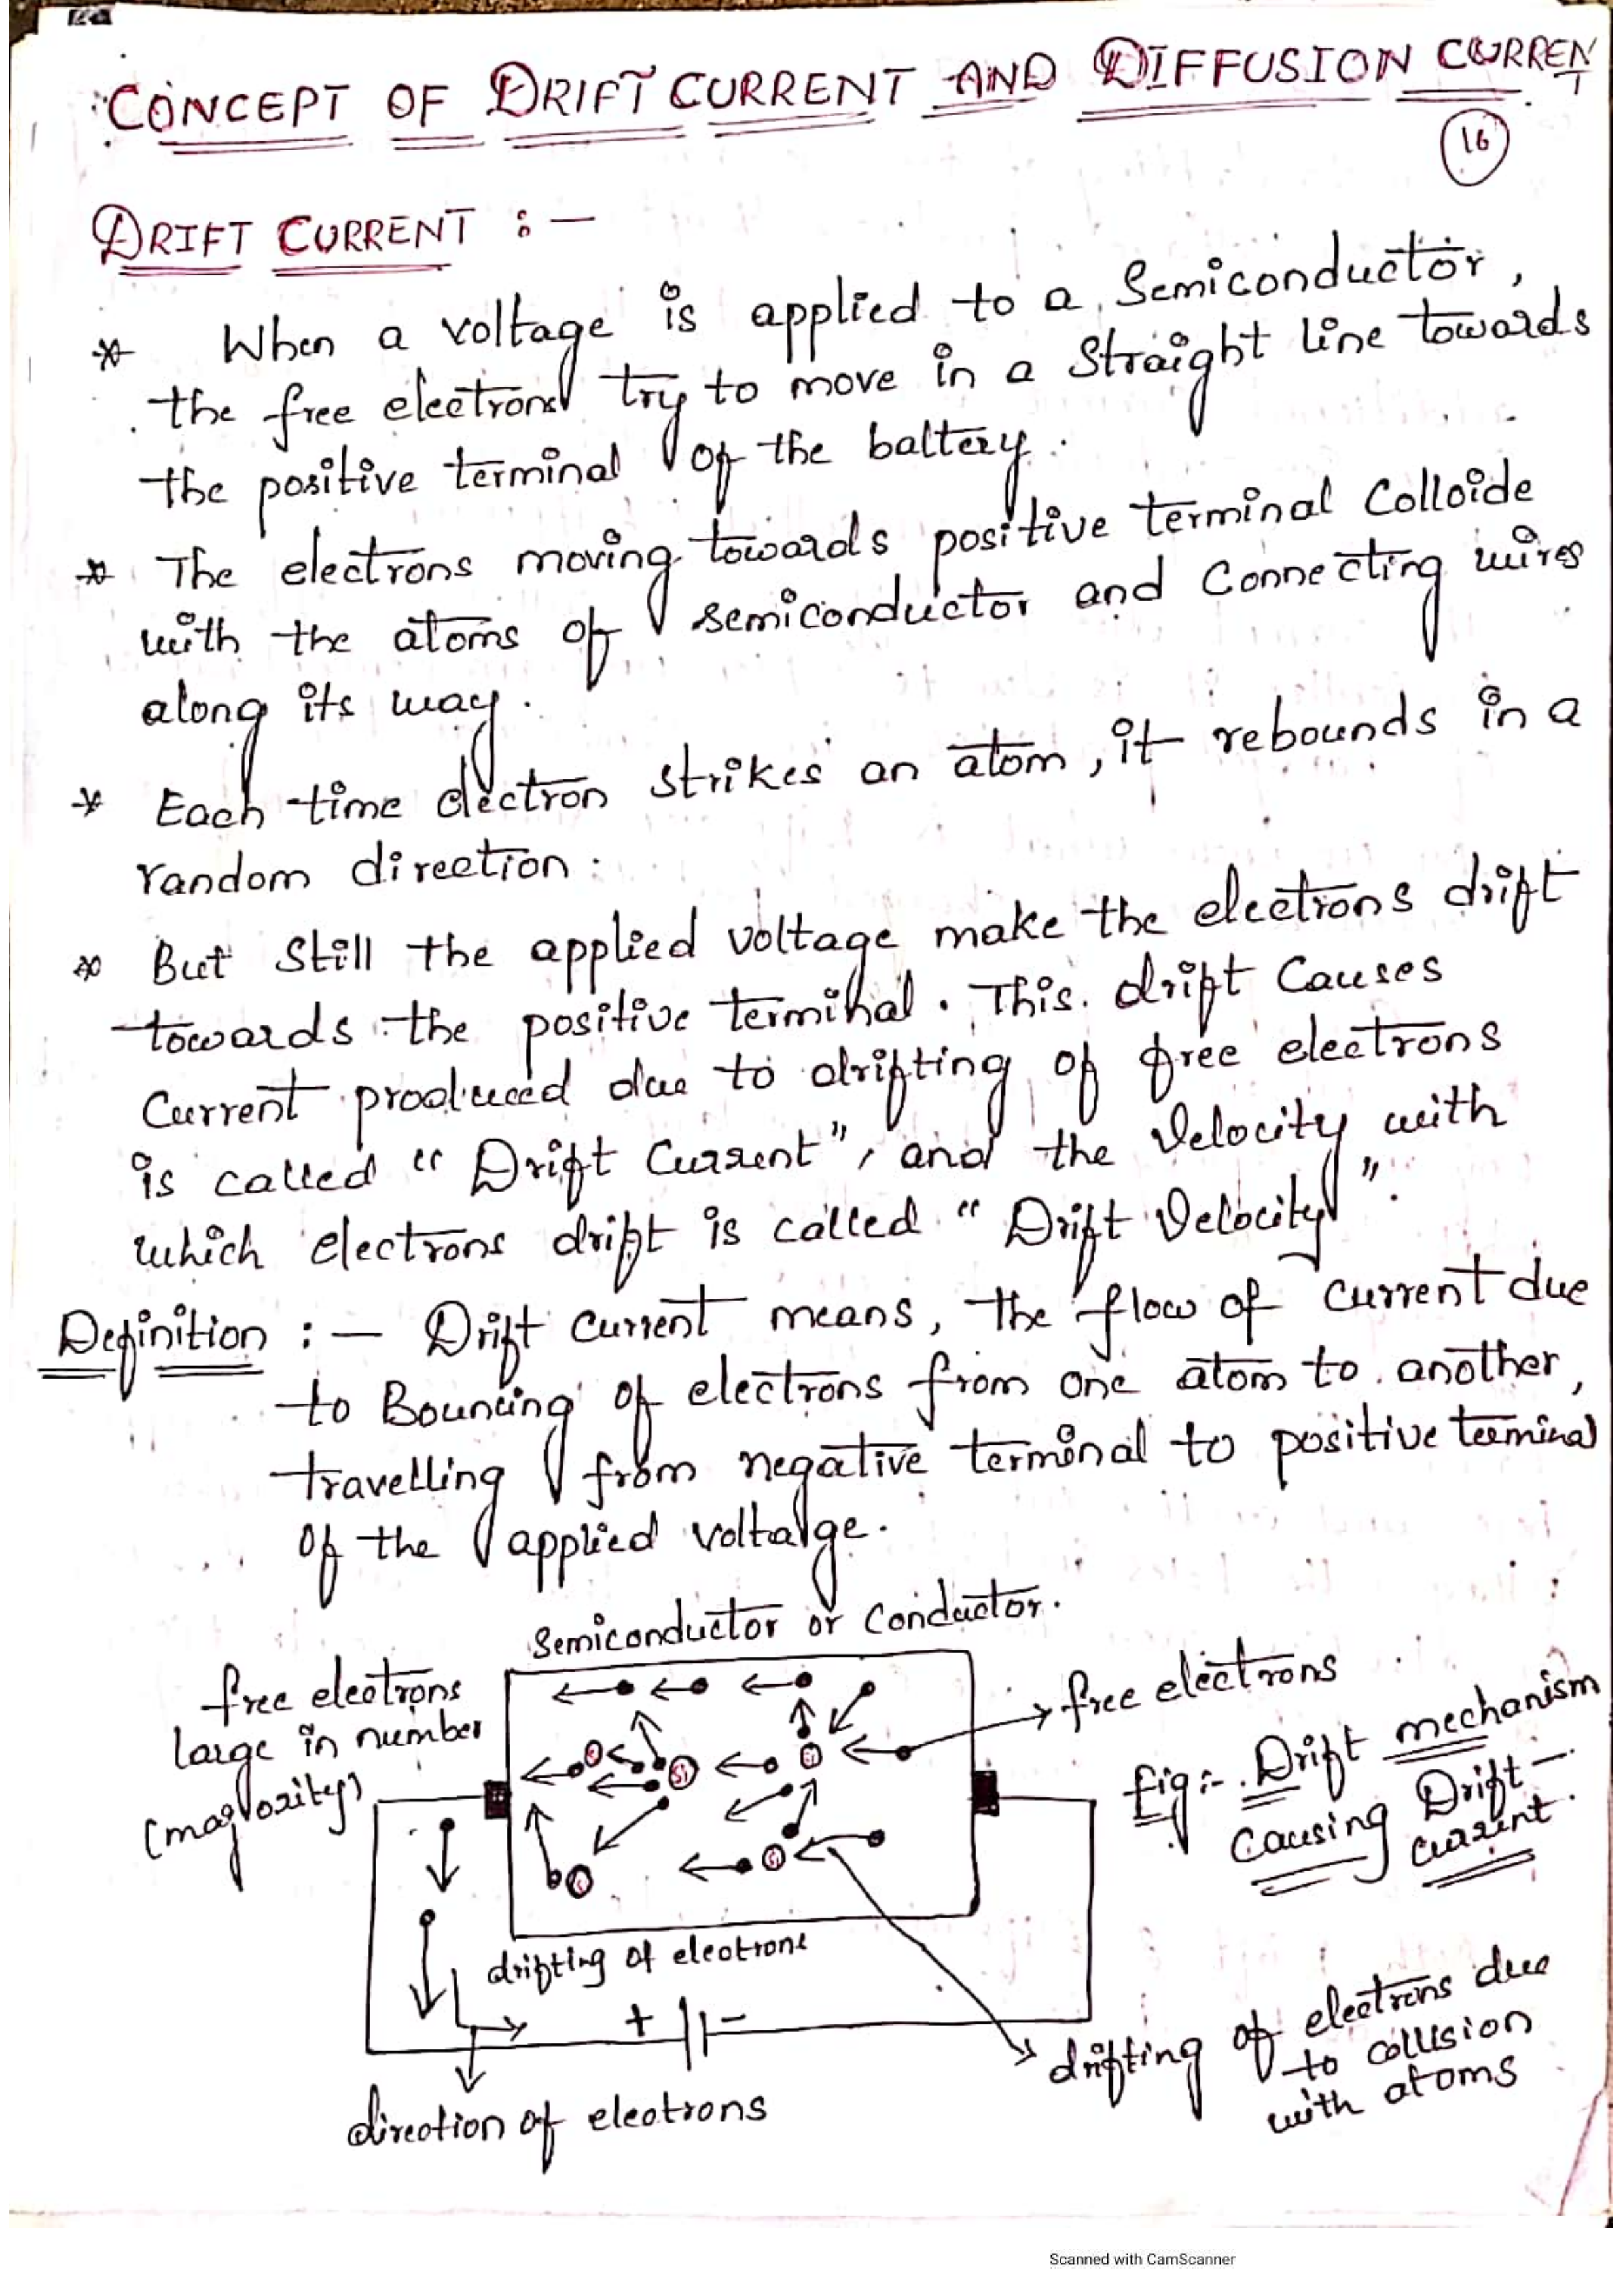 CONCEPT OF DRIFT CURRENT AND DIFFUSION CURRENT
16
DRIFT CURRENT :-
* When a voltage is applied to a Semiconductor,
the free electrons try to move in a Straight line towards
the positive terminal of the battery.
* The electrons moving towards positive terminal Colloide
with the atoms of semiconductor and Connecting wires
along its way.
* Each time electron strikes an atom, it rebounds in a
random direction.
* But Still the applied voltage make the electrons drift
towards the positive terminal. This drift Causes
Current produced due to drifting of free electrons
is called "Drift Current", and the Velocity with
which electrons drift is called "Drift Velocity".
Definition :- Drift Current means, the flow of Current due
to Bouncing of electrons from one atom to another,
travelling from negative terminal to positive terminal
of the applied voltage.
Semiconductor or Conductor.
free electrons
large in number
(majority)
free electrons
Si
Si
Si
Fig:- Drift mechanism
Causing Drift-
current.
drifting of electrons
+ -
direction of electrons
drifting of electrons due
to collision
with atoms
Scanned with CamScanner